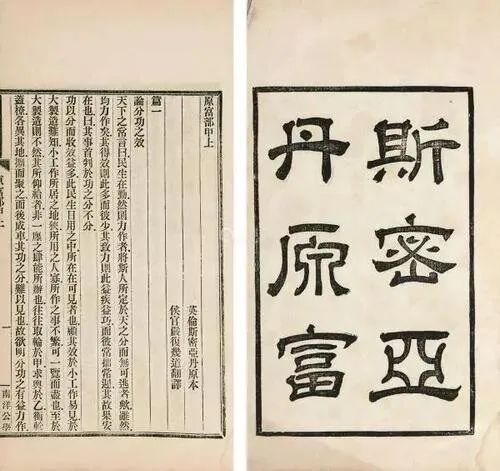 斯密亞
丹原富
原富部甲上
英倫斯密亞丹原本
侯官嚴復幾道翻譯
篇一
論分功之效
天下之常言曰民生在勤然則力作者將斯人所定於天之分而無可逃者歟雖然
均力作矣其得效則此多而彼少其致力則此益疾益巧而彼常拙常遲其故果安
在也曰其事首判於功之分不分
功以分而收效益多此民生日用之中所在在可見者也顧其效於小工作易見於
大製造難知小工作所居之地狹所用之人寡所作之事不繁可一覽而盡也至於
大製造則不然其所仰給者非一廛之肆能所辦也往往取輪於甲求輿於乙衡軫
蓋橑各異其地攢而聚之而後成車其功之分難以見也故欲明分功之有益力作
一
南洋公學